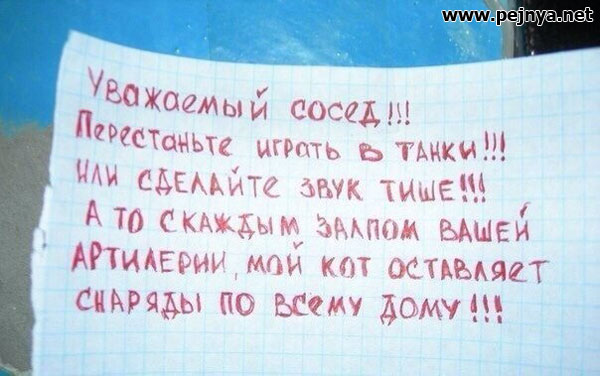 www.pejnya.net
Уважаемый сосед!!!
Перестаньте играть в танки!!!
Или сделайте звук тише!!!
А то с каждым залпом вашей
артилерии, мой кот оставляет
снаряды по всему дому!!!